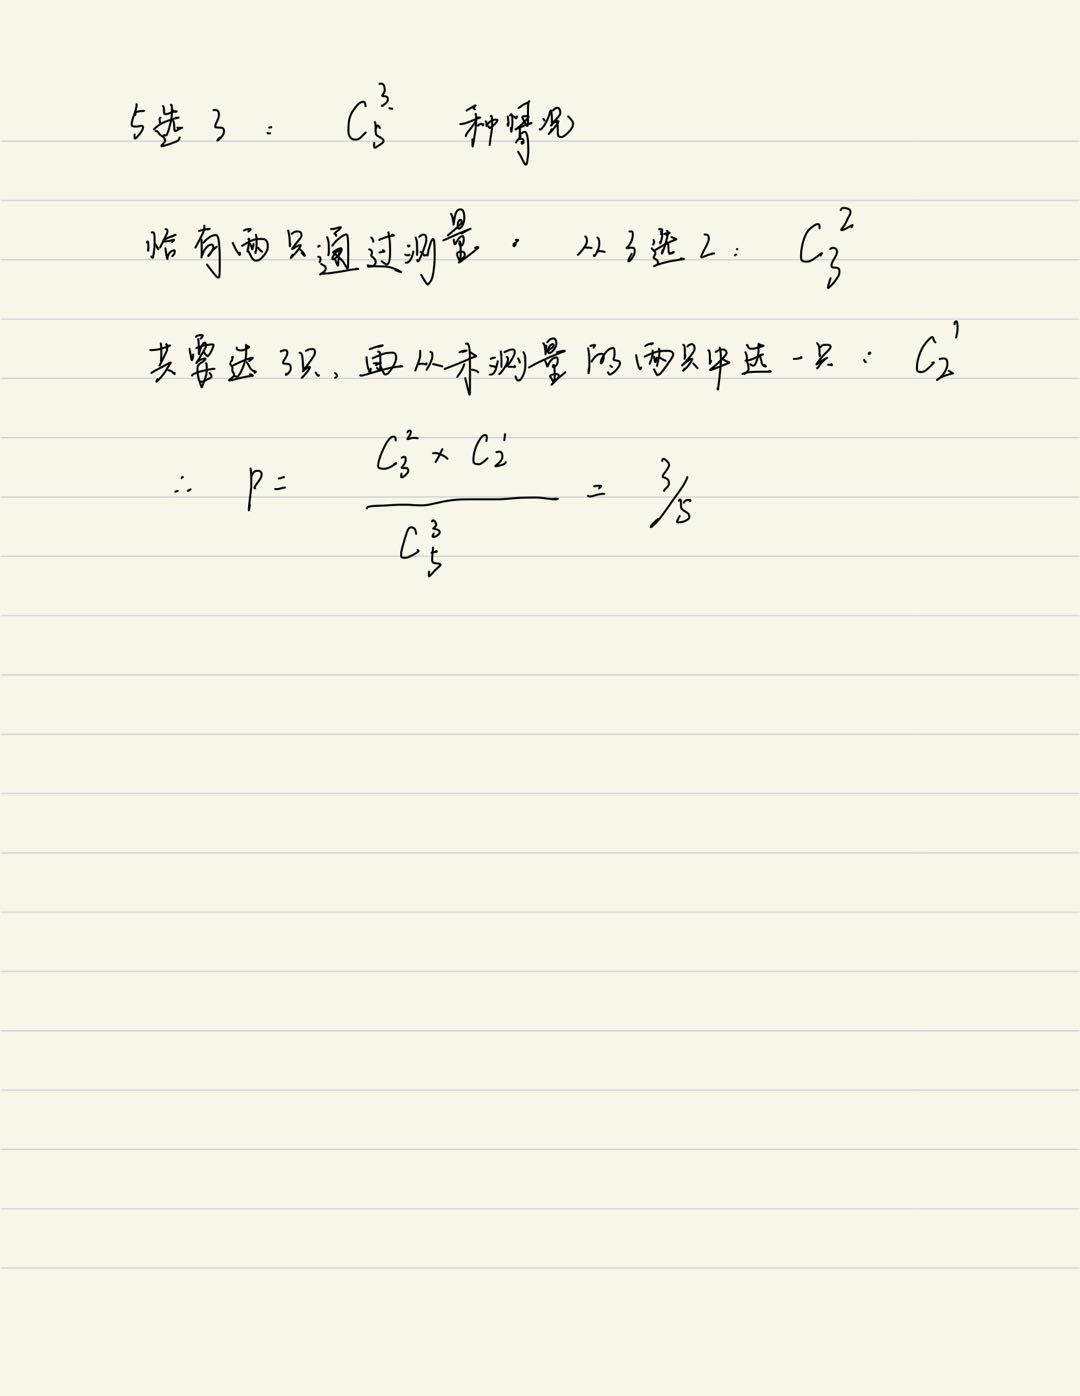 5选3： C₅³ 种情况
恰有两只通过测量. 从3选2： C₃²
共要选3只, 再从未测量的两只中选一只： C₂¹
∴ P = (C₃² × C₂¹) / C₅³ = 3/5